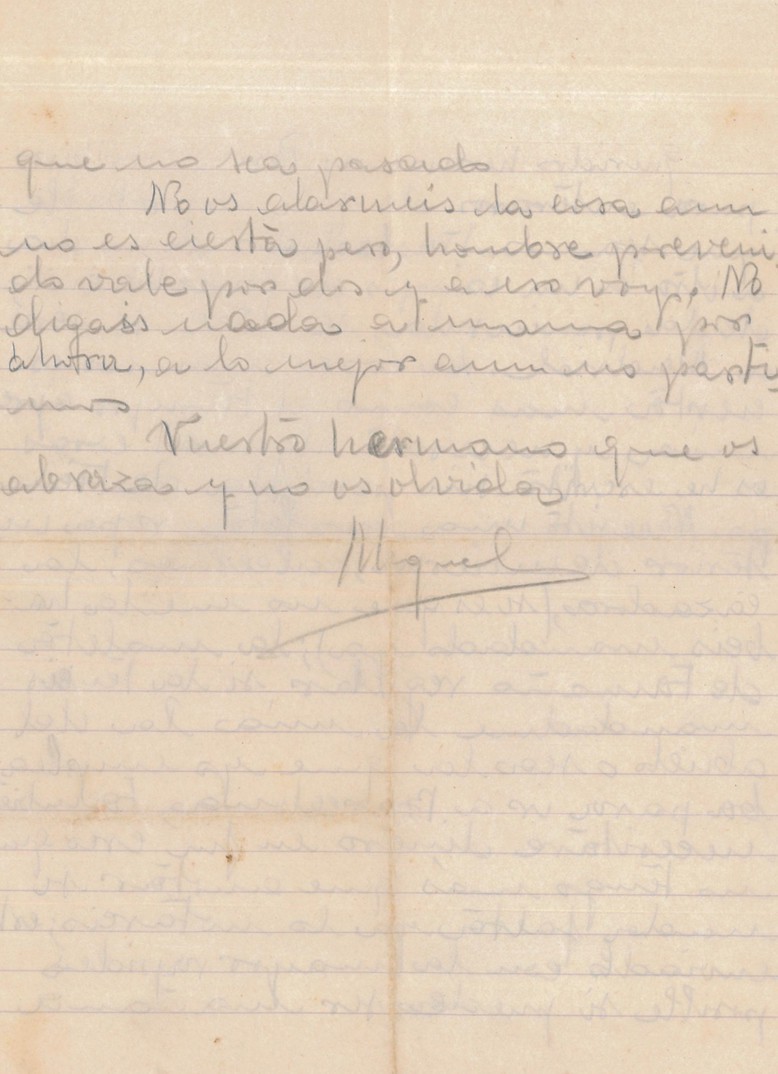 que no sea pasado
No os alarmeis la cosa aun
no es cierta pero, hombre preveni
do vale por dos y a eso voy, No
digais nada a mama por
ahora, a lo mejor aun no parti
mos
Vuestro hermano que os
abraza y no os olvida
Miguel